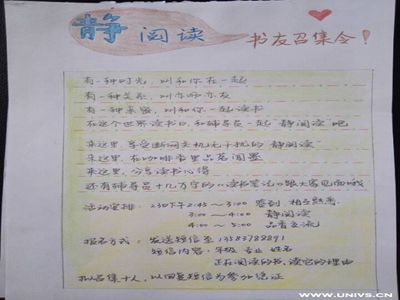 静 阅读
书友召集令!
有一种时光, 叫和你在一起
有一种关系, 叫亦师亦友
有一种亲密, 叫和你一起读书
在这个世界读书日, 和辅导员一起“静阅读”吧
来这里, 享受断网关机无干扰的 静阅读
来这里, 在咖啡书里品茗阅墨
来这里, 分享读书心得
还有辅导员十几万字的《读书笔记》跟大家见面哦
活动安排: 23日下午2:45 — 3:00 签到 相互熟悉
3:00 — 4:00 静阅读
4:00 — 5:00 品香交流
报名方式: 发送短信至 13583789891
短信内容: 年级 专业 姓名
正在阅读的书, 读它的理由
拟召集十人, 以回复短信为参加凭证
WWW.UNIVS.CN